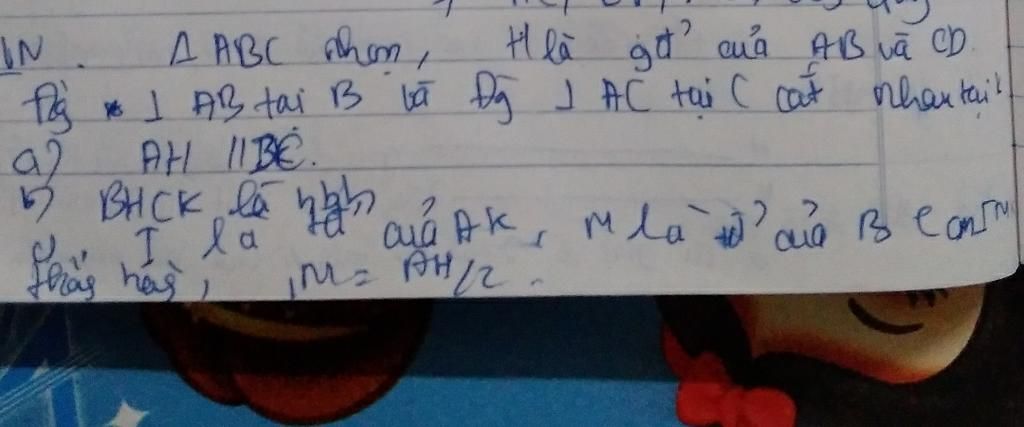 Δ ABC nhọn, H là gđ' của AB và CD
Đg ⊥ AB tại B và Đg ⊥ AC tại C cắt nhau tại
a) AH // BC.
b) BHCK là hbh
c) I là của AK, M là của B C cm IM
thẳng hàng, IM = AH/2.